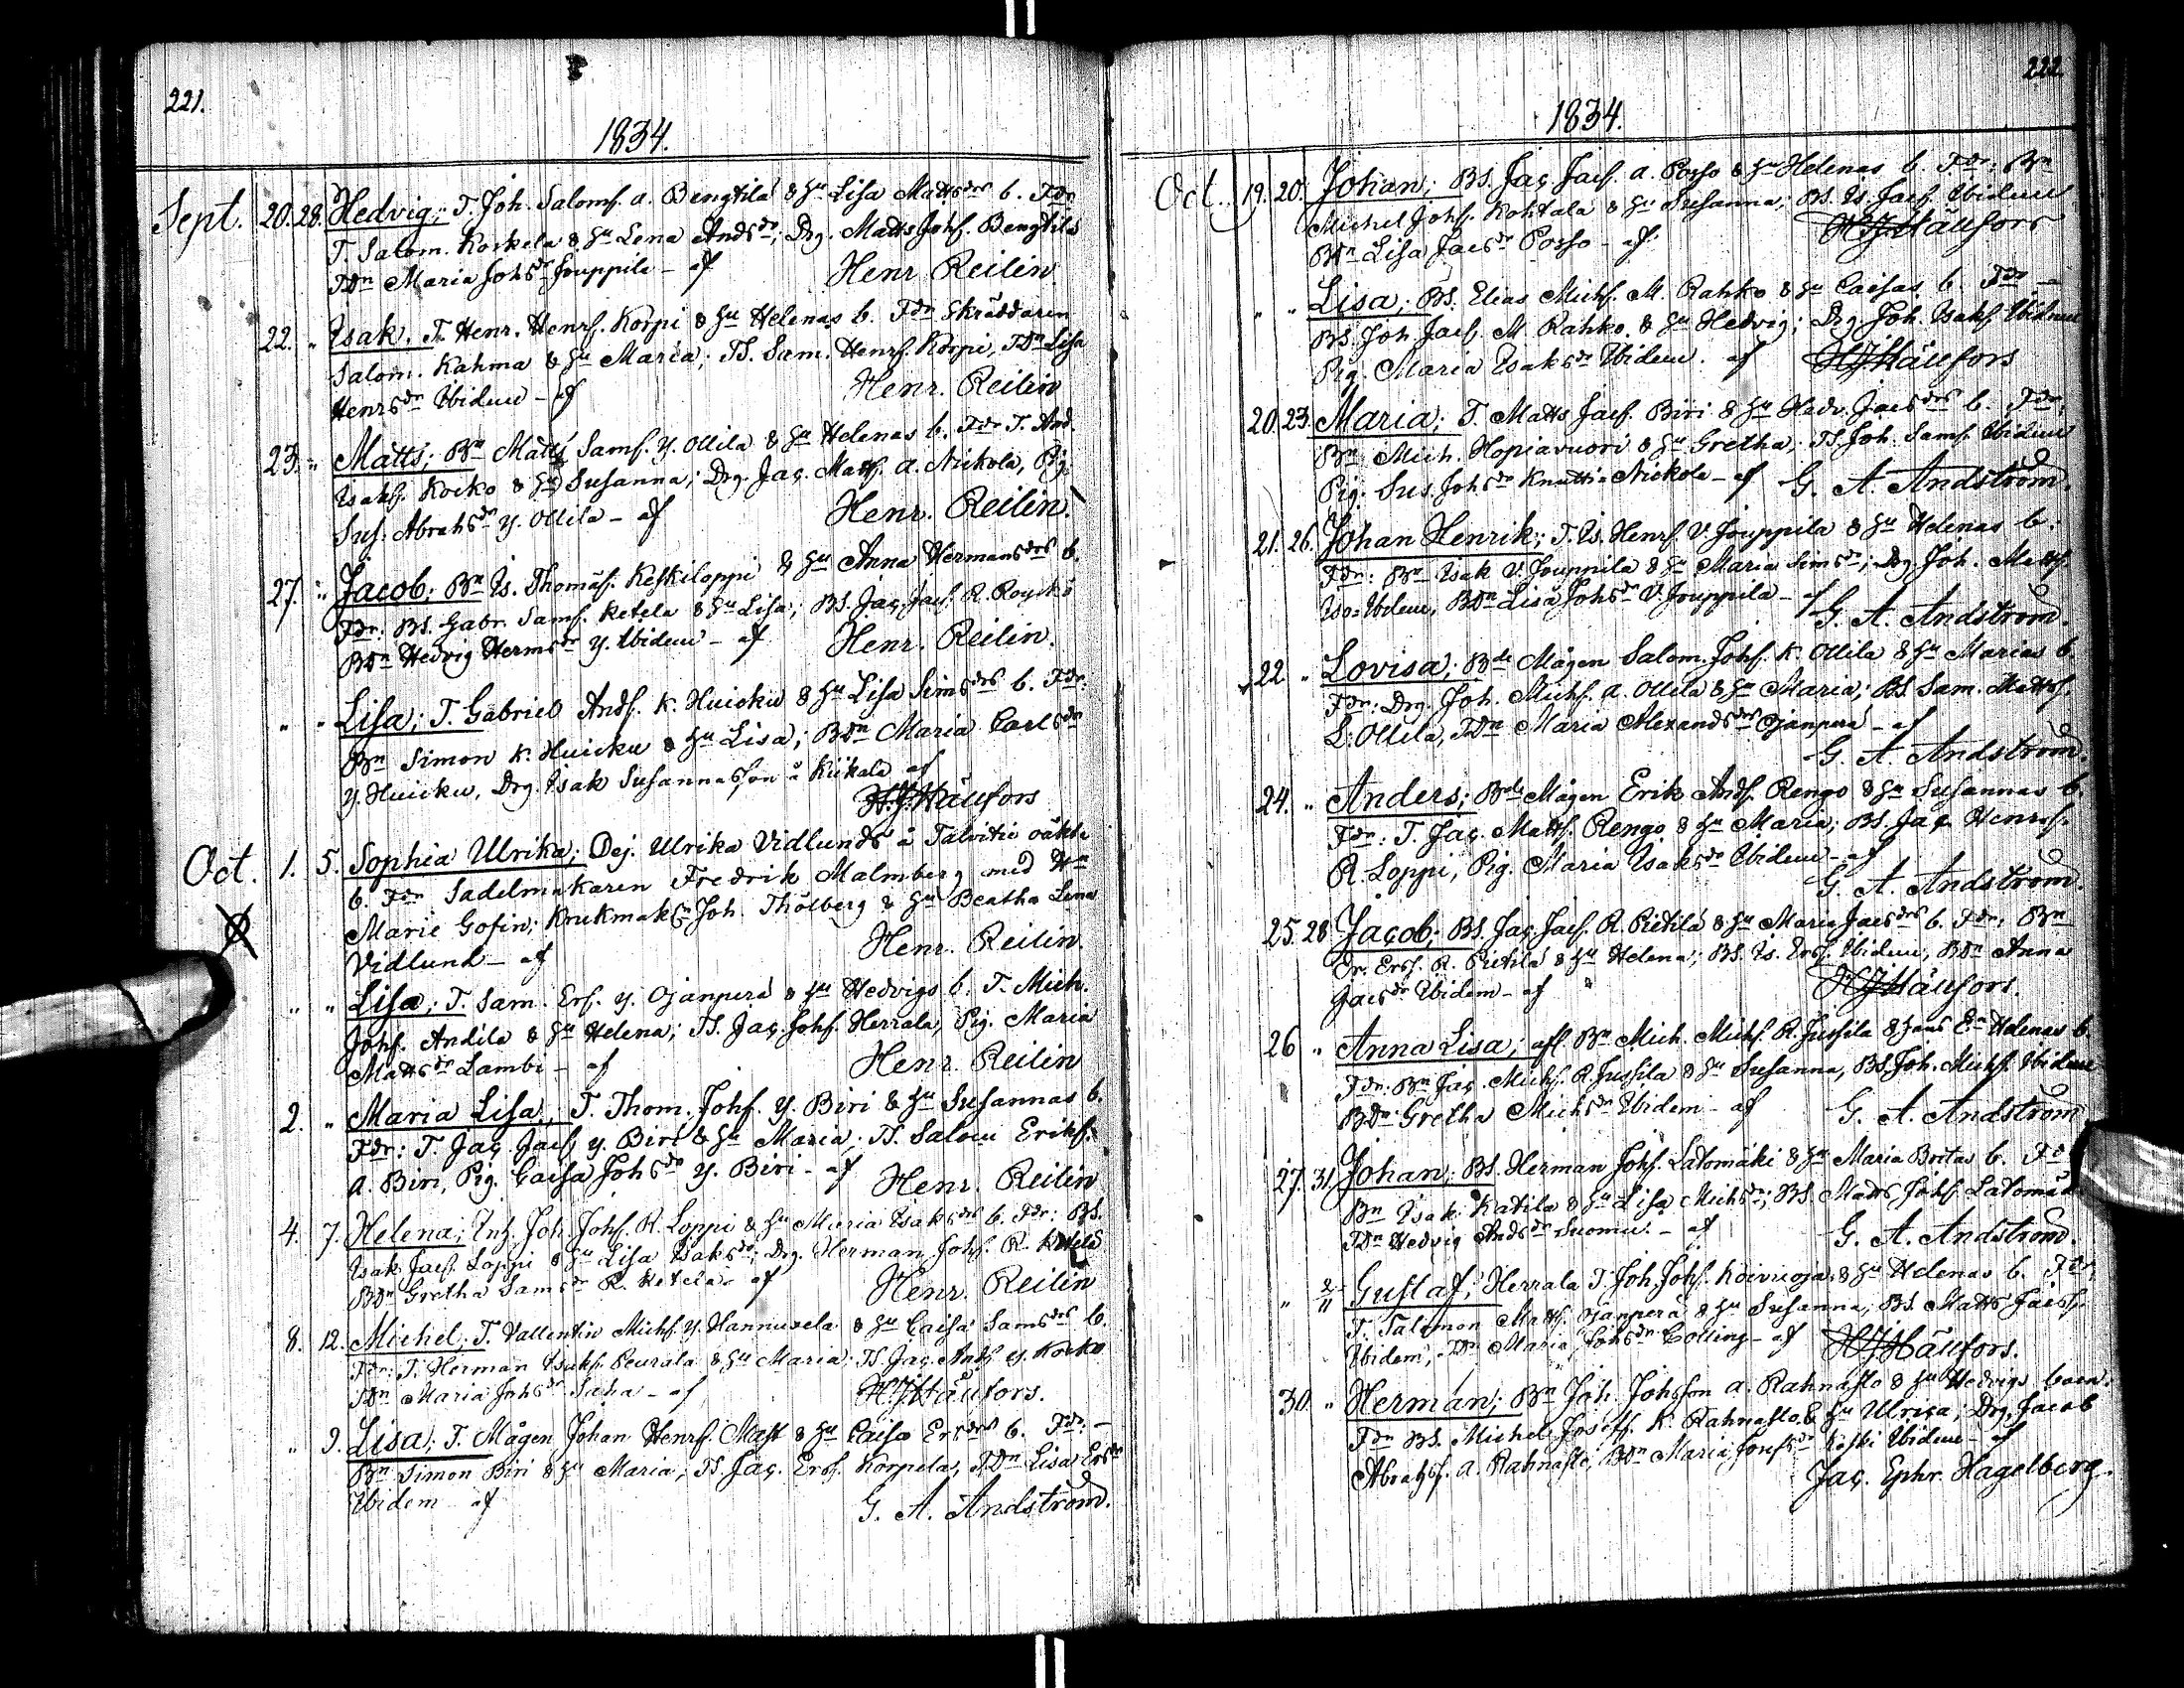 221.
1834.
Sept. 20. 28. Hedvig; T. Joh. Salomſ. a. Bengtilä & hu Lisa Mattsdrs b. Fdr
T. Salom. Korkela & hu Lena Andsdr; Drg. Matts Johſ. Bengtilä
TDn Maria Johsdr Jouppila - af Henr Reilin
22. " Isak. T. Henr. Henrſ. Korpi & hu Helenas b. Fdr Skräddaren
Salom. Kahma & hu Maria; TS. Sam. Henrſ. Korpi, TDn Lisa
Henrsdr Ibidem - af Henr. Reilin
23. " Matts; Bn Matts Samſ. Y. Ollila & hu Helenas b. Fdr T. And.
Isakſ. Kocko & hu Susanna; Drg. Jac. Mattſ. a. Nickola, Pig.
Sus. Abrahsdr Y. Ollila - af Henr. Reilin.
27. " Jacob; Bn Is. Thomaſ. Keskiloppi & hu Anna Hermansdrs b.
Fdr: BS. Gabr. Samſ. Ketela & hu Lisa; BS. Jac. Jacſ. R.
BDn Hedvig Hermsdr Y. Ibidem - af Henr. Reilin.
" " Lisa; T. Gabriel Andſ. K. Huicku & hu Lisa Simsdrs b. Fdr:
Bn Simon K. Huicku & hu Lisa; BDn Maria Carlsdr
Y. Huicku, Drg. Isak Susannasson å Kiikala af
H.J. Häufors
Oct. 1. 5. Sophia Ulrika; Dej. Ulrika Vidlunds å Talvitie oäkta
b. Fdr Sadelmakaren Fredrik Malmberg med
Marie Gofin; Krukmak. Joh. Thölberg & hu Beatha Lena
Vidlund - af Henr. Reilin.
" " Lisa; T. Sam. Erſ. Y. Ojanperä & hu Hedvigs b. T. Mich.
Johſ. Andila & hu Helena; TS. Jac. Johſ. Herrala, Pig. Maria
Mattsdr Lambi - af Henr. Reilin
2. " Maria Lisa; T. Thom. Johſ. Y. Biri & hu Susannas b.
Fdr: T. Jac. Jacſ. Y. Biri & hu Maria; TS. Salom Erikſ.
a. Biri, Pig. Caisa Johsdr Y. Biri - af Henr. Reilin
4. 7. Helena; Inh. Joh. Johſ. R. Loppi & hu Maria Isaksdrs b. Fdr: BS.
Isak Jacſ. Loppi & hu Lisa Isaksdr; Drg. Herman Johſ. R. Ketelä
BDn Gretha Samsdr R. Ketela - af Henr. Reilin
8. 12. Michel; T. Vallentin Michſ. Y. Hannuxela & hu Caisa Samsdrs b.
Fdr: T. Herman Isakſ. Peurala & hu Maria; TS. Jac. Andſ. Y. Kocko
TDn Maria Johsdr Saha - af H.J. Häufors.
" 9. Lisa; T. Mågen Johan Henrſ. Mast & hu Caisa Ersdrs b. Fdr: -
Bn Simon Biri & hu Maria; TS. Jac. Ersſ. Korpela, TDn Lisa Ersdr
Ibidem - af G. A. Andström.
222.
1834.
Oct. 19. 20. Johan; BS. Jac. Jacſ. a. Posso & hu Helenas b. Fdr: Bn
Michel Johſ. Kohtala & hu Susanna; BS. Is. Jacſ. Ibidem
BDn Lisa Jacsdr Posso - af H.J. Häufors
" " Lisa; BS. Elias Michſ. M. Rahko & hu Caisas b. Fdr -
BS. Joh. Jacſ. M. Rahko & hu Hedvig; Drg Joh. Isakſ. Ibidem
Pig. Maria Isaksdr Ibidem. af H.J. Häufors
20. 23. Maria; T. Matts Jacſ. Biri & hu Hedv. Jacsdrs b. Fdr:
Bn Mich. Hopiavuori & hu Gretha; TS. Joh. Samſ. Ibidem
Pig. Sus. Johsdr Knutti-Nickola - af G. A. Andström.
21. 26. Johan Henrik; T. Is. Henrſ. V. Jouppila & hu Helenas b.
Fdr: Bn Isak V. Jouppila & hu Maria Simsdr; Drg. Joh. Mattſ.
Iso-Ibidem, BDn Lisa Johsdr V. Jouppila - af
G. A. Andström.
22 " Lovisa; Bde Mågen Salom. Johſ. K. Ollila & hu Marias b.
Fdr: Drg. Joh. Michſ. a. Ollila & hu Maria; BS. Sam. Mattsſ.
L. Ollila, TDn Maria Alexandsdr Ojanperä - af
G. A. Andström.
24. " Anders; Bde Mågen Erik Andſ. Rengo & hu Susannas b.
Fdr: T. Jac. Mattſ. Rengo & hu Maria; BS. Jac. Henrsſ.
R. Loppi, Pig. Maria Isaksdr Ibidem - af
G. A. Andström.
25. 28 Jacob; BS. Jac. Jacſ. R. Pietilä & hu Maria Jacsdrs b. Fdr: Bn
Er. Ersſ. R. Pietilä & hu Helena; BS. Is. Ersſ. Ibidem, BDn Anna
Jacsdr Ibidem - af H.J. Häufors.
26 " Anna Lisa; afl. Bn Mich. Michſ. R. Jussila & hans En Helenas b.
Fdr: Bn Jac. Michſ. R. Jussila & hu Susanna, BS. Joh. Michſ. Ibidem
BDn Gretha Michsdr Ibidem - af G. A. Andström
27. 31 Johan; BS. Herman Johſ. Latomäki & hu Maria Britas b. Fdr
Bn Isak Katila & hu Lisa Michsdr; BS. Matts Johſ. Latomäki
TDn Hedvig Andsdr Suomu. - af G. A. Andström.
" 2/11 Gustaf; Herrala T. Joh. Johſ. Koivuoja & hu Helenas b. Fdr:
T. Salomon Mattſ. Ojanperä & hu Susanna, BS. Matts Jacsſ.
Ibidem, TDn Maria Johsdr Colling - af H.J. Häufors.
30. " Herman; Bn Joh. Johsson a. Rahnasto & hu Hedvigs barn.
Fdr BS. Michel Josefſ. K. Rahnasto & hu Ulrica; Drg. Jacob
Abrahsſ. a. Rahnasto, BDn Maria Josefsdr Koski Ibidem - af
Jac. Ephr. Hagelberg.